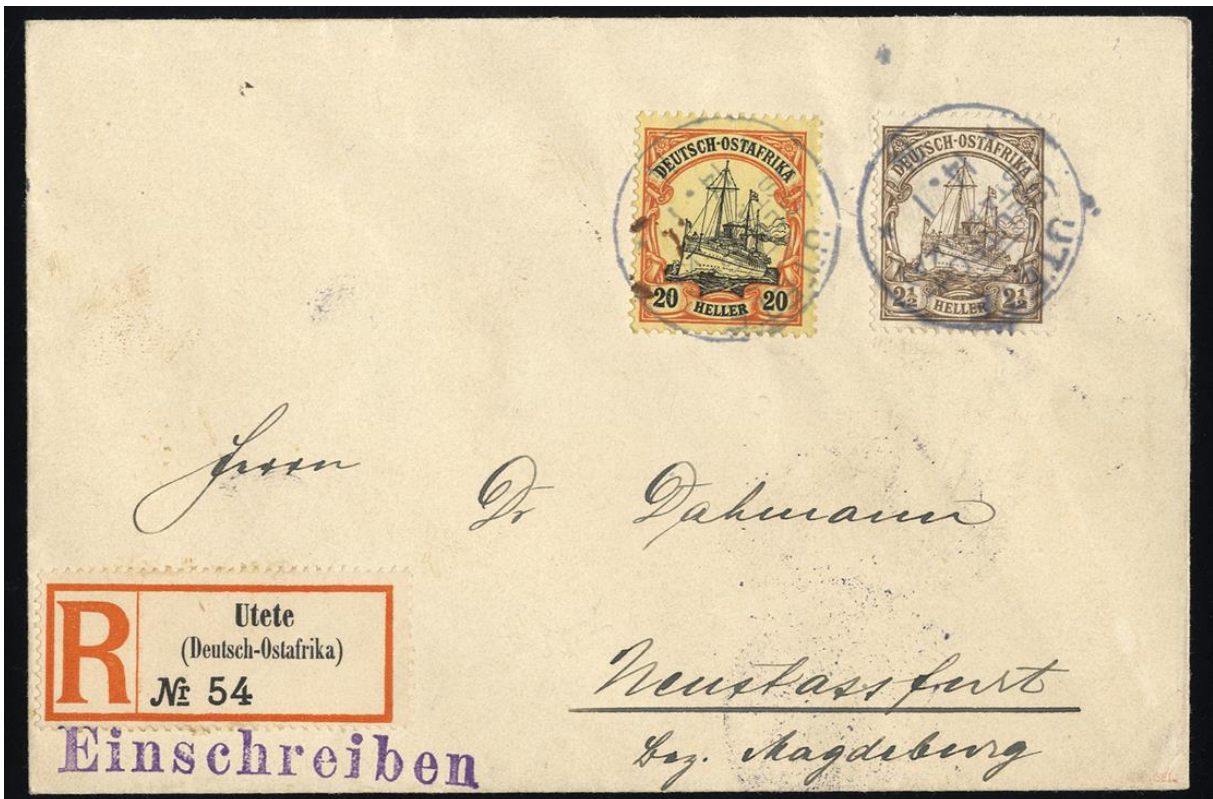 DEUTSCH-OSTAFRIKA
20 HELLER 20
DEUTSCH-OSTAFRIKA
2½ HELLER 2½
Herrn
Dr Dahmann
R
Utete
(Deutsch-Ostafrika)
Nr 54
Neustassfurt
Einschreiben
Bez. Magdeburg